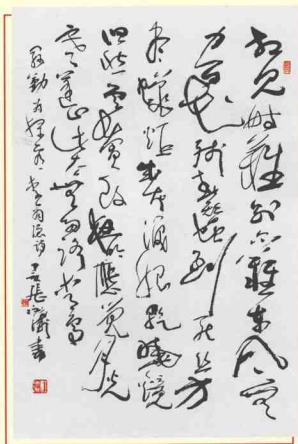 相見時難别亦難東風無
力百花殘春蠶到死絲方
盡蠟炬成灰淚始乾曉鏡
但愁雲鬢改夜吟應覺月光
寒蓬山此去無多路青鳥
殷勤為探看 李商隱詩 張 書